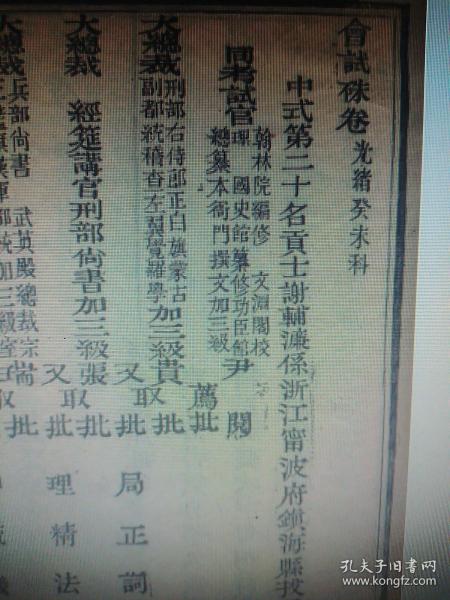 會試硃卷 光緒癸未科
中式第二十名貢士謝輔濂係浙江甯波府鎮海縣
同考試官 翰林院編修 文淵閣校理 國史館纂修功臣館總纂本衙門撰文加三級尹 閱
薦批
大總裁 刑部右侍郎正白旗蒙古副都統稽查左翼覺羅學加三級貴 批
取
又批 局正詞
大總裁 經筵講官刑部尚書加三級張 批
取
又批 理精法
大總裁兵部尚書 武英殿總裁
取
批
孔夫子旧书网
www.kongfz.com